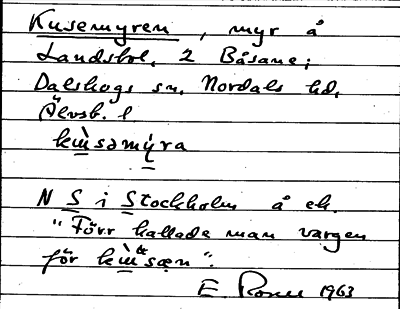 Kusemyren, myr å
Landsbol, 2 Båsane;
Dalskogs sn, Nordals hd,
Älvsb. l
kɯ̀səmýra
N S i Stockholm å ek.
"Förr kallade man vargen
för kɯ̀sæn".
E. 1963